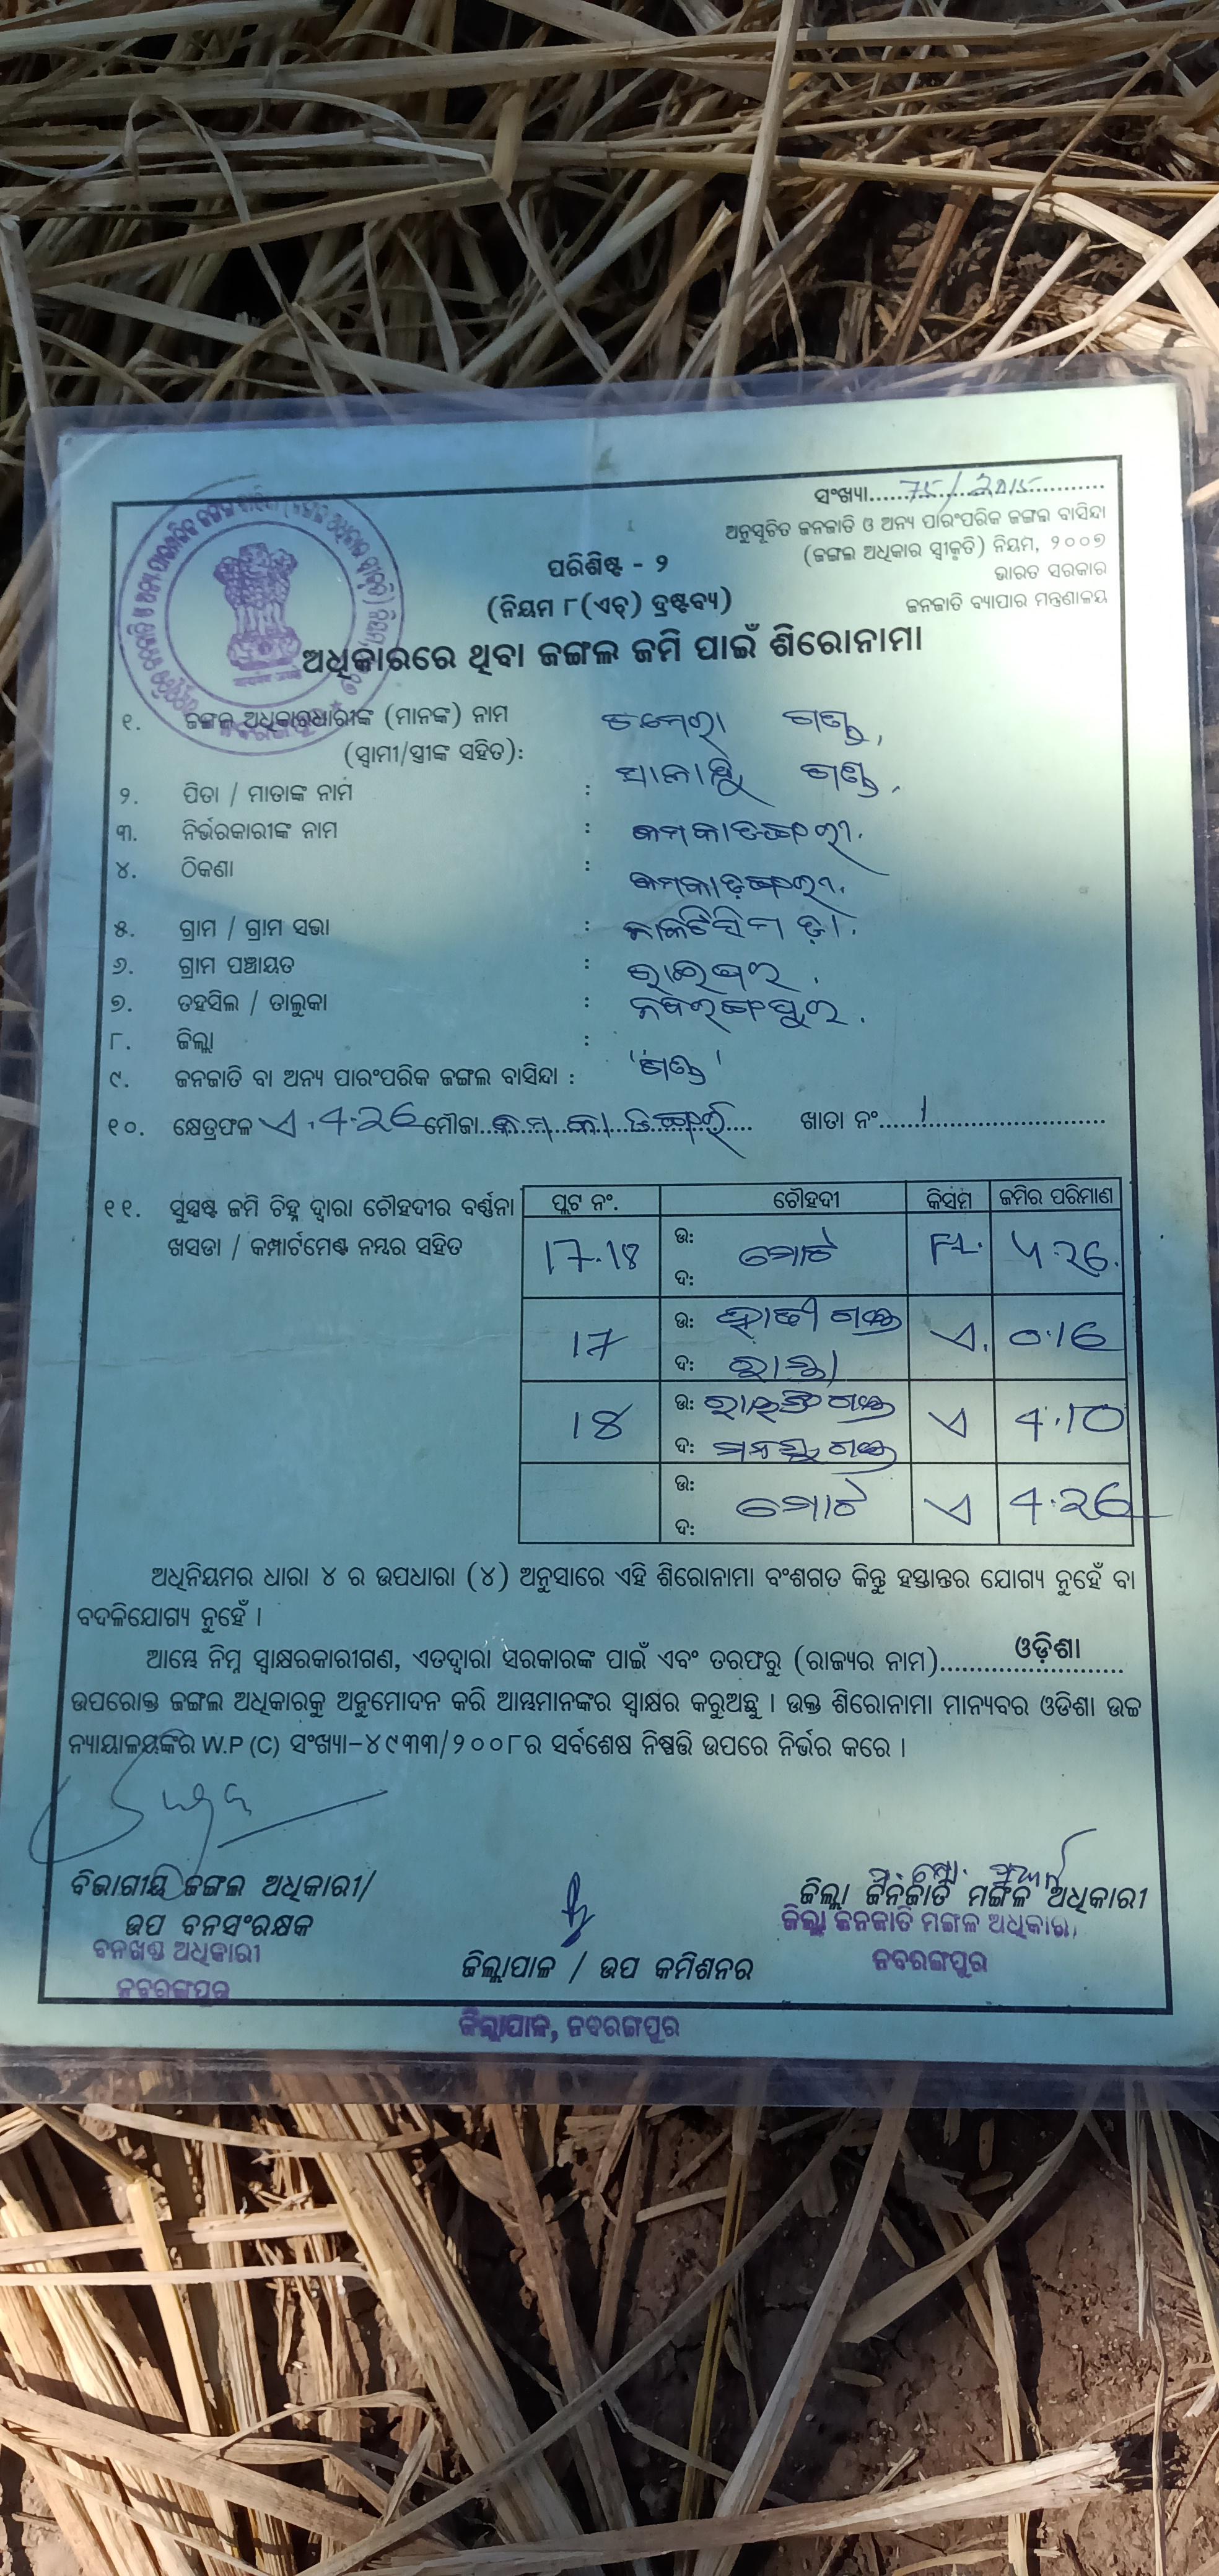 ସଂଖ୍ୟା........75/2015........
ଅନୁସୂଚିତ ଜନଜାତି ଓ ଅନ୍ୟ ପାରଂପରିକ ଜଙ୍ଗଲ ବାସିନ୍ଦା
(ଜଙ୍ଗଲ ଅଧିକାର ସ୍ୱୀକୃତି) ନିୟମ, ୨୦୦୭
ଭାରତ ସରକାର
ଜନଜାତି ବ୍ୟାପାର ମନ୍ତ୍ରଣାଳୟ
ପରିଶିଷ୍ଟ - ୨
(ନିୟମ ୮(ଏଚ୍) ଦ୍ରଷ୍ଟବ୍ୟ)
ଅଧିକାରରେ ଥିବା ଜଙ୍ଗଲ ଜମି ପାଇଁ ଶିରୋନାମା
୧. ଜଙ୍ଗଲ ଅଧିକାରଧାରୀଙ୍କ (ମାନଙ୍କ) ନାମ ଗଣ୍ଡ,
(ସ୍ୱାମୀ/ସ୍ତ୍ରୀଙ୍କ ସହିତ):
୨. ପିତା / ମାତାଙ୍କ ନାମ : ଗଣ୍ଡ,
୩. ନିର୍ଭରକାରୀଙ୍କ ନାମ :
୪. ଠିକଣା :
୫. ଗ୍ରାମ / ଗ୍ରାମ ସଭା :
୬. ଗ୍ରାମ ପଞ୍ଚାୟତ :
୭. ତହସିଲ / ତାଲୁକା : ରାଇଘର.
୮. ଜିଲ୍ଲା : ନବରଙ୍ଗପୁର.
୯. ଜନଜାତି ବା ଅନ୍ୟ ପାରଂପରିକ ଜଙ୍ଗଲ ବାସିନ୍ଦା : 'ଗଣ୍ଡ'
୧୦. କ୍ଷେତ୍ରଫଳ ଏ.4.26 ମୌଜା ଖାତା ନଂ....1....
୧୧. ସୁସ୍ପଷ୍ଟ ଜମି ଚିହ୍ନ ଦ୍ୱାରା ଚୌହଦୀର ବର୍ଣ୍ଣନା
ଖସଡା / କମ୍ପାର୍ଟମେଣ୍ଟ ନମ୍ବର ସହିତ
ପ୍ଲଟ ନଂ. ଚୌହଦୀ କିସମ ଜମିର ପରିମାଣ
17.18 ଉ: ଦ: ମୋଟ 4.26.
17 ଉ: ଗଣ୍ଡ ଏ. 0.16
ଦ: ରାସ୍ତା
18 ଉ: ଗଣ୍ଡ ଏ 4.10
ଦ: ଗଣ୍ଡ
ଉ: ଦ: ମୋଟ ଏ 4.26
ଅଧିନିୟମର ଧାରା ୪ ର ଉପଧାରା (୪) ଅନୁସାରେ ଏହି ଶିରୋନାମା ବଂଶଗତ କିନ୍ତୁ ହସ୍ତାନ୍ତର ଯୋଗ୍ୟ ନୁହେଁ ବା
ବଦଳିଯୋଗ୍ୟ ନୁହେଁ ।
ଆମ୍ଭେ ନିମ୍ନ ସ୍ୱାକ୍ଷରକାରୀଗଣ, ଏତଦ୍ୱାରା ସରକାରଙ୍କ ପାଇଁ ଏବଂ ତରଫରୁ (ରାଜ୍ୟର ନାମ)......ଓଡ଼ିଶା......
ଉପରୋକ୍ତ ଜଙ୍ଗଲ ଅଧିକାରକୁ ଅନୁମୋଦନ କରି ଆମ୍ଭମାନଙ୍କର ସ୍ୱାକ୍ଷର କରୁଅଛୁ । ଉକ୍ତ ଶିରୋନାମା ମାନ୍ୟବର ଓଡିଶା ଉଚ୍ଚ
ନ୍ୟାୟାଳୟଙ୍କର W.P (C) ସଂଖ୍ୟା-୪୯୩୩/୨୦୦୮ର ସର୍ବଶେଷ ନିଷ୍ପତ୍ତି ଉପରେ ନିର୍ଭର କରେ ।
ବିଭାଗୀୟ ଜଙ୍ଗଲ ଅଧିକାରୀ/
ଉପ ବନସଂରକ୍ଷକ
ବନଖଣ୍ଡ ଅଧିକାରୀ
ନବରଙ୍ଗପୁର
ଜିଲ୍ଲାପାଳ / ଉପ କମିଶନର
ଜିଲ୍ଲାପାଳ, ନବରଙ୍ଗପୁର
ଜିଲ୍ଲା ଜନଜାତି ମଙ୍ଗଳ ଅଧିକାରୀ
ଜିଲ୍ଲା ଜନଜାତି ମଙ୍ଗଳ ଅଧିକାରୀ,
ନବରଙ୍ଗପୁର